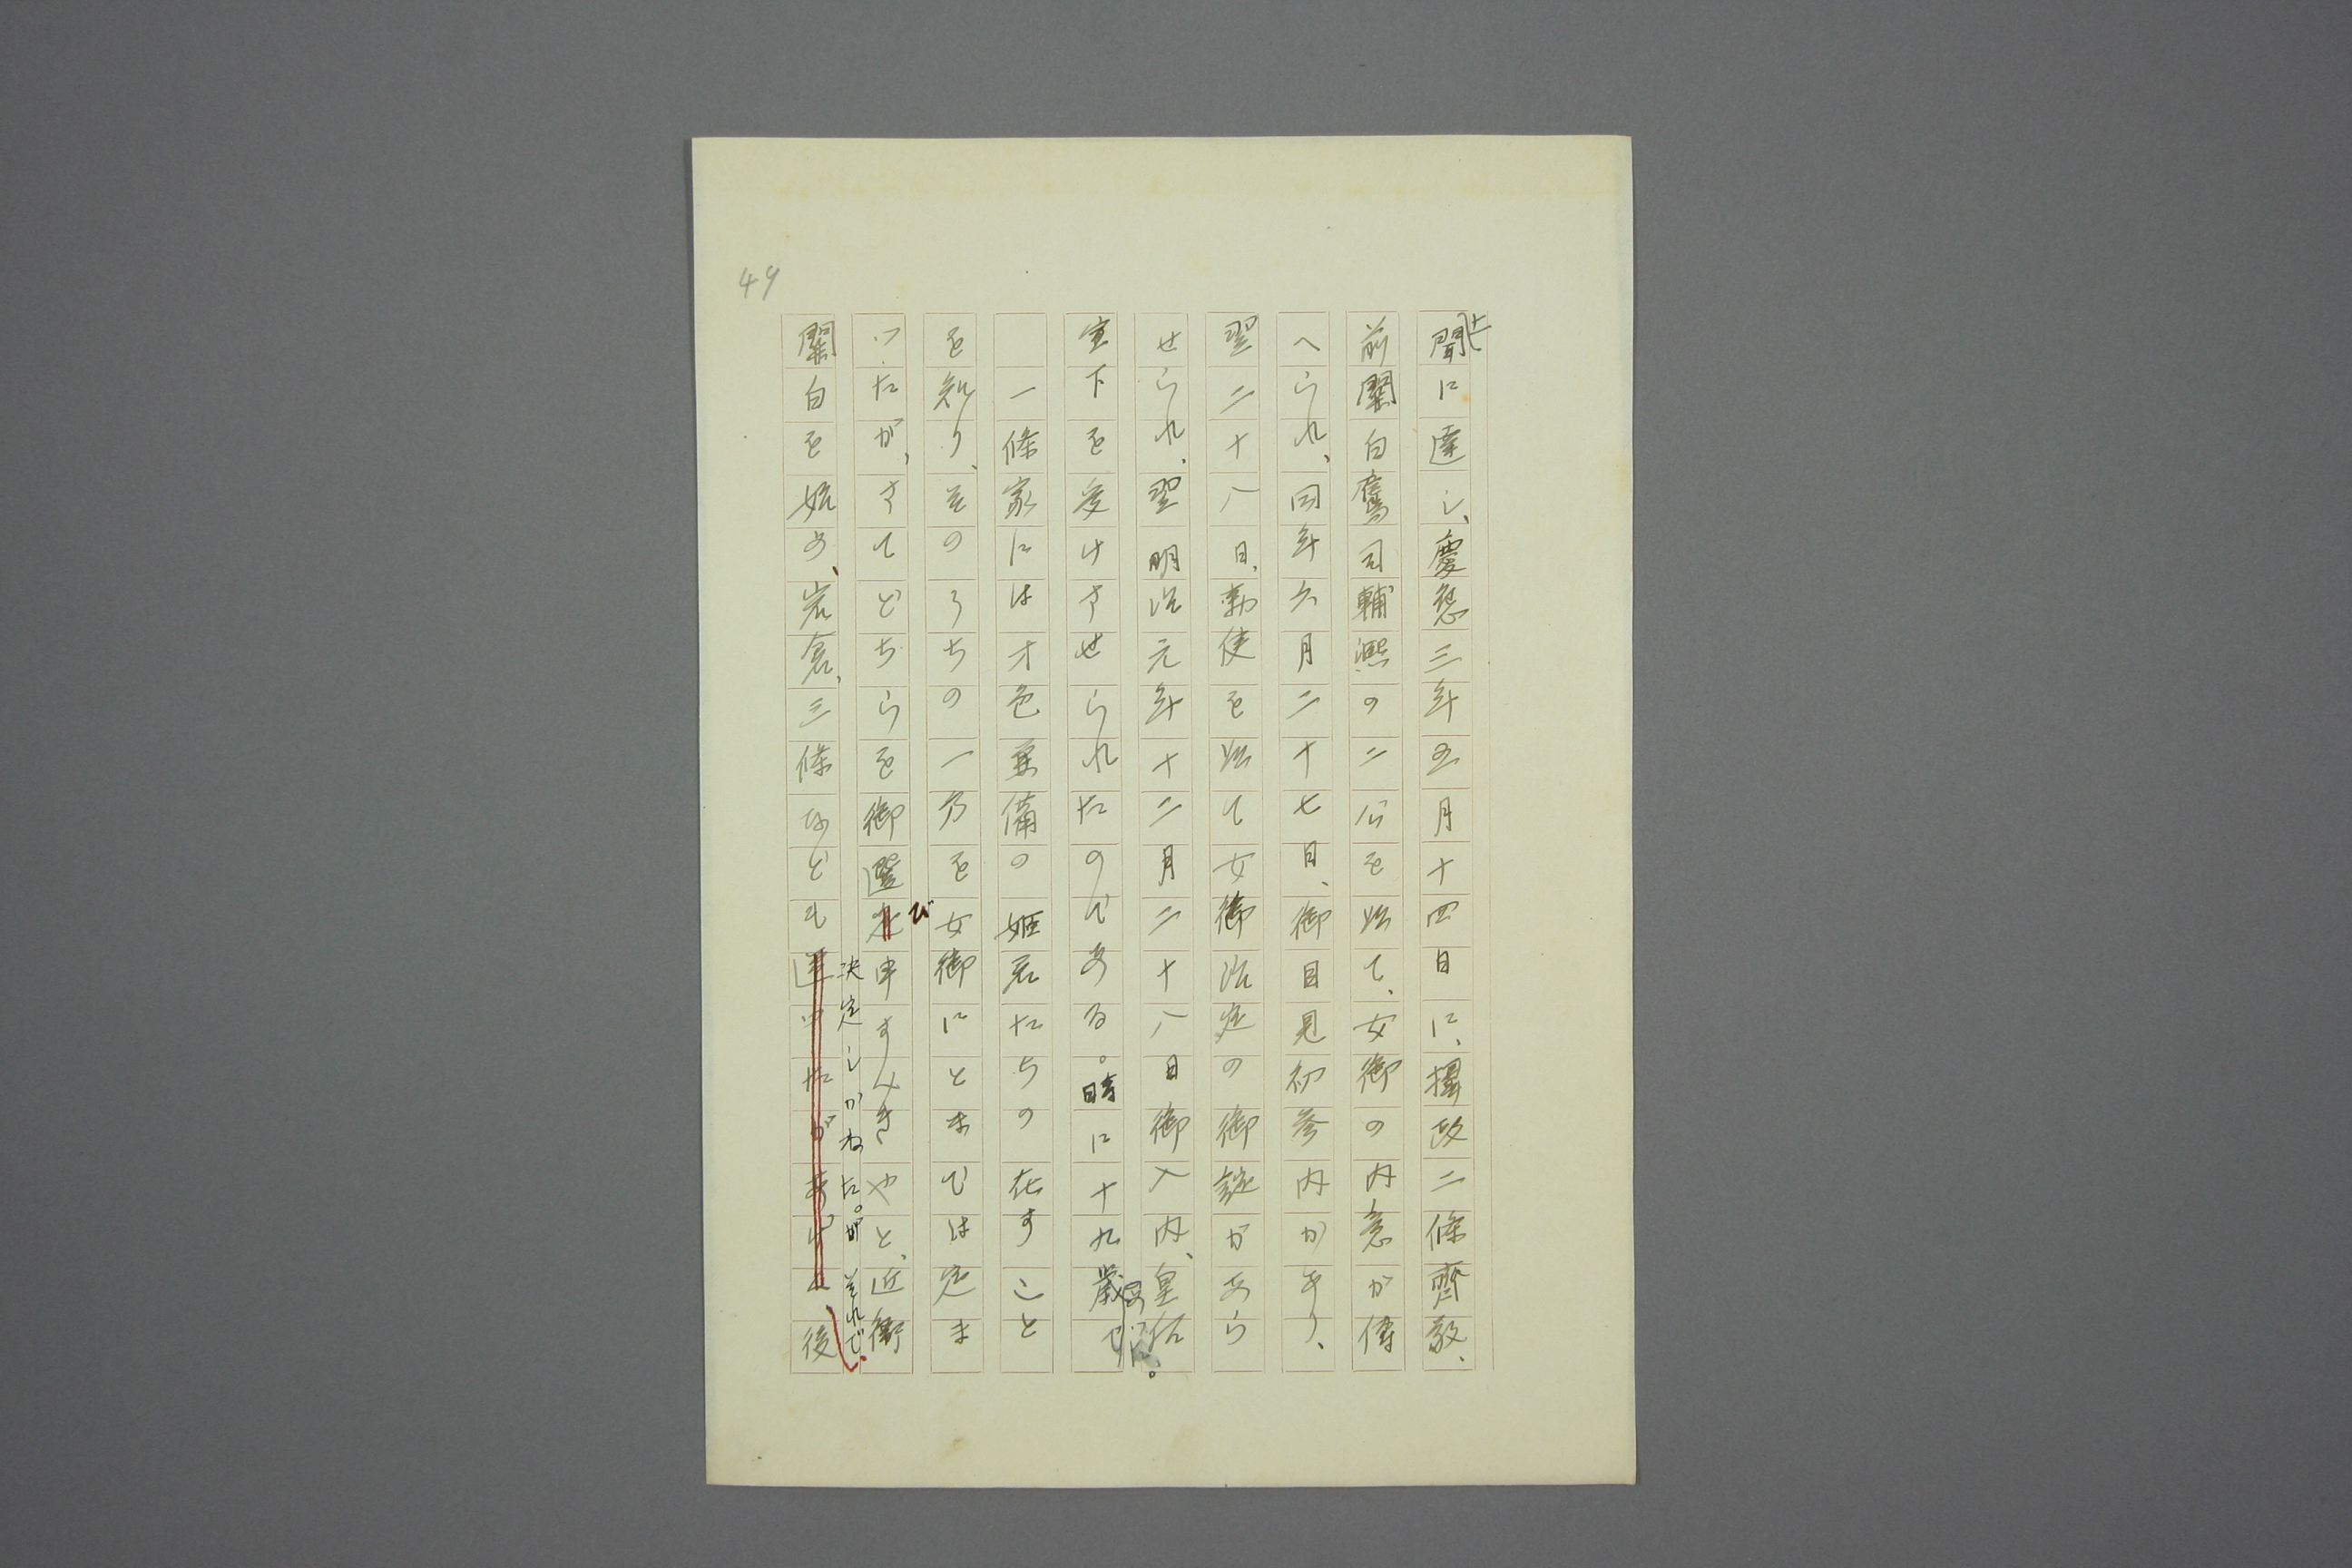 49
上
聞に達し、慶応三年五月十四日に、摂政二條齊敬、
前關白鷹司輔熙の二公を以て、女御の内意が傳
へられ、同年六月二十七日、御目見初参内があり、
翌二十八日、勅使を以て女御治定の御錠があら
せられ、翌明治元年十二月二十八日御入内、皇后。
宣下を受けさせられたのである。時に十九歳で
一條家には才色兼備の姫君たちの在すこと
を知り、そのうちの一方を女御にとまでは定ま
つたが、さてどちらを御選び申すべきやと、近衛
決定しかねた。が それで、
關白を始め、岩倉、三條なども迷つたが、後